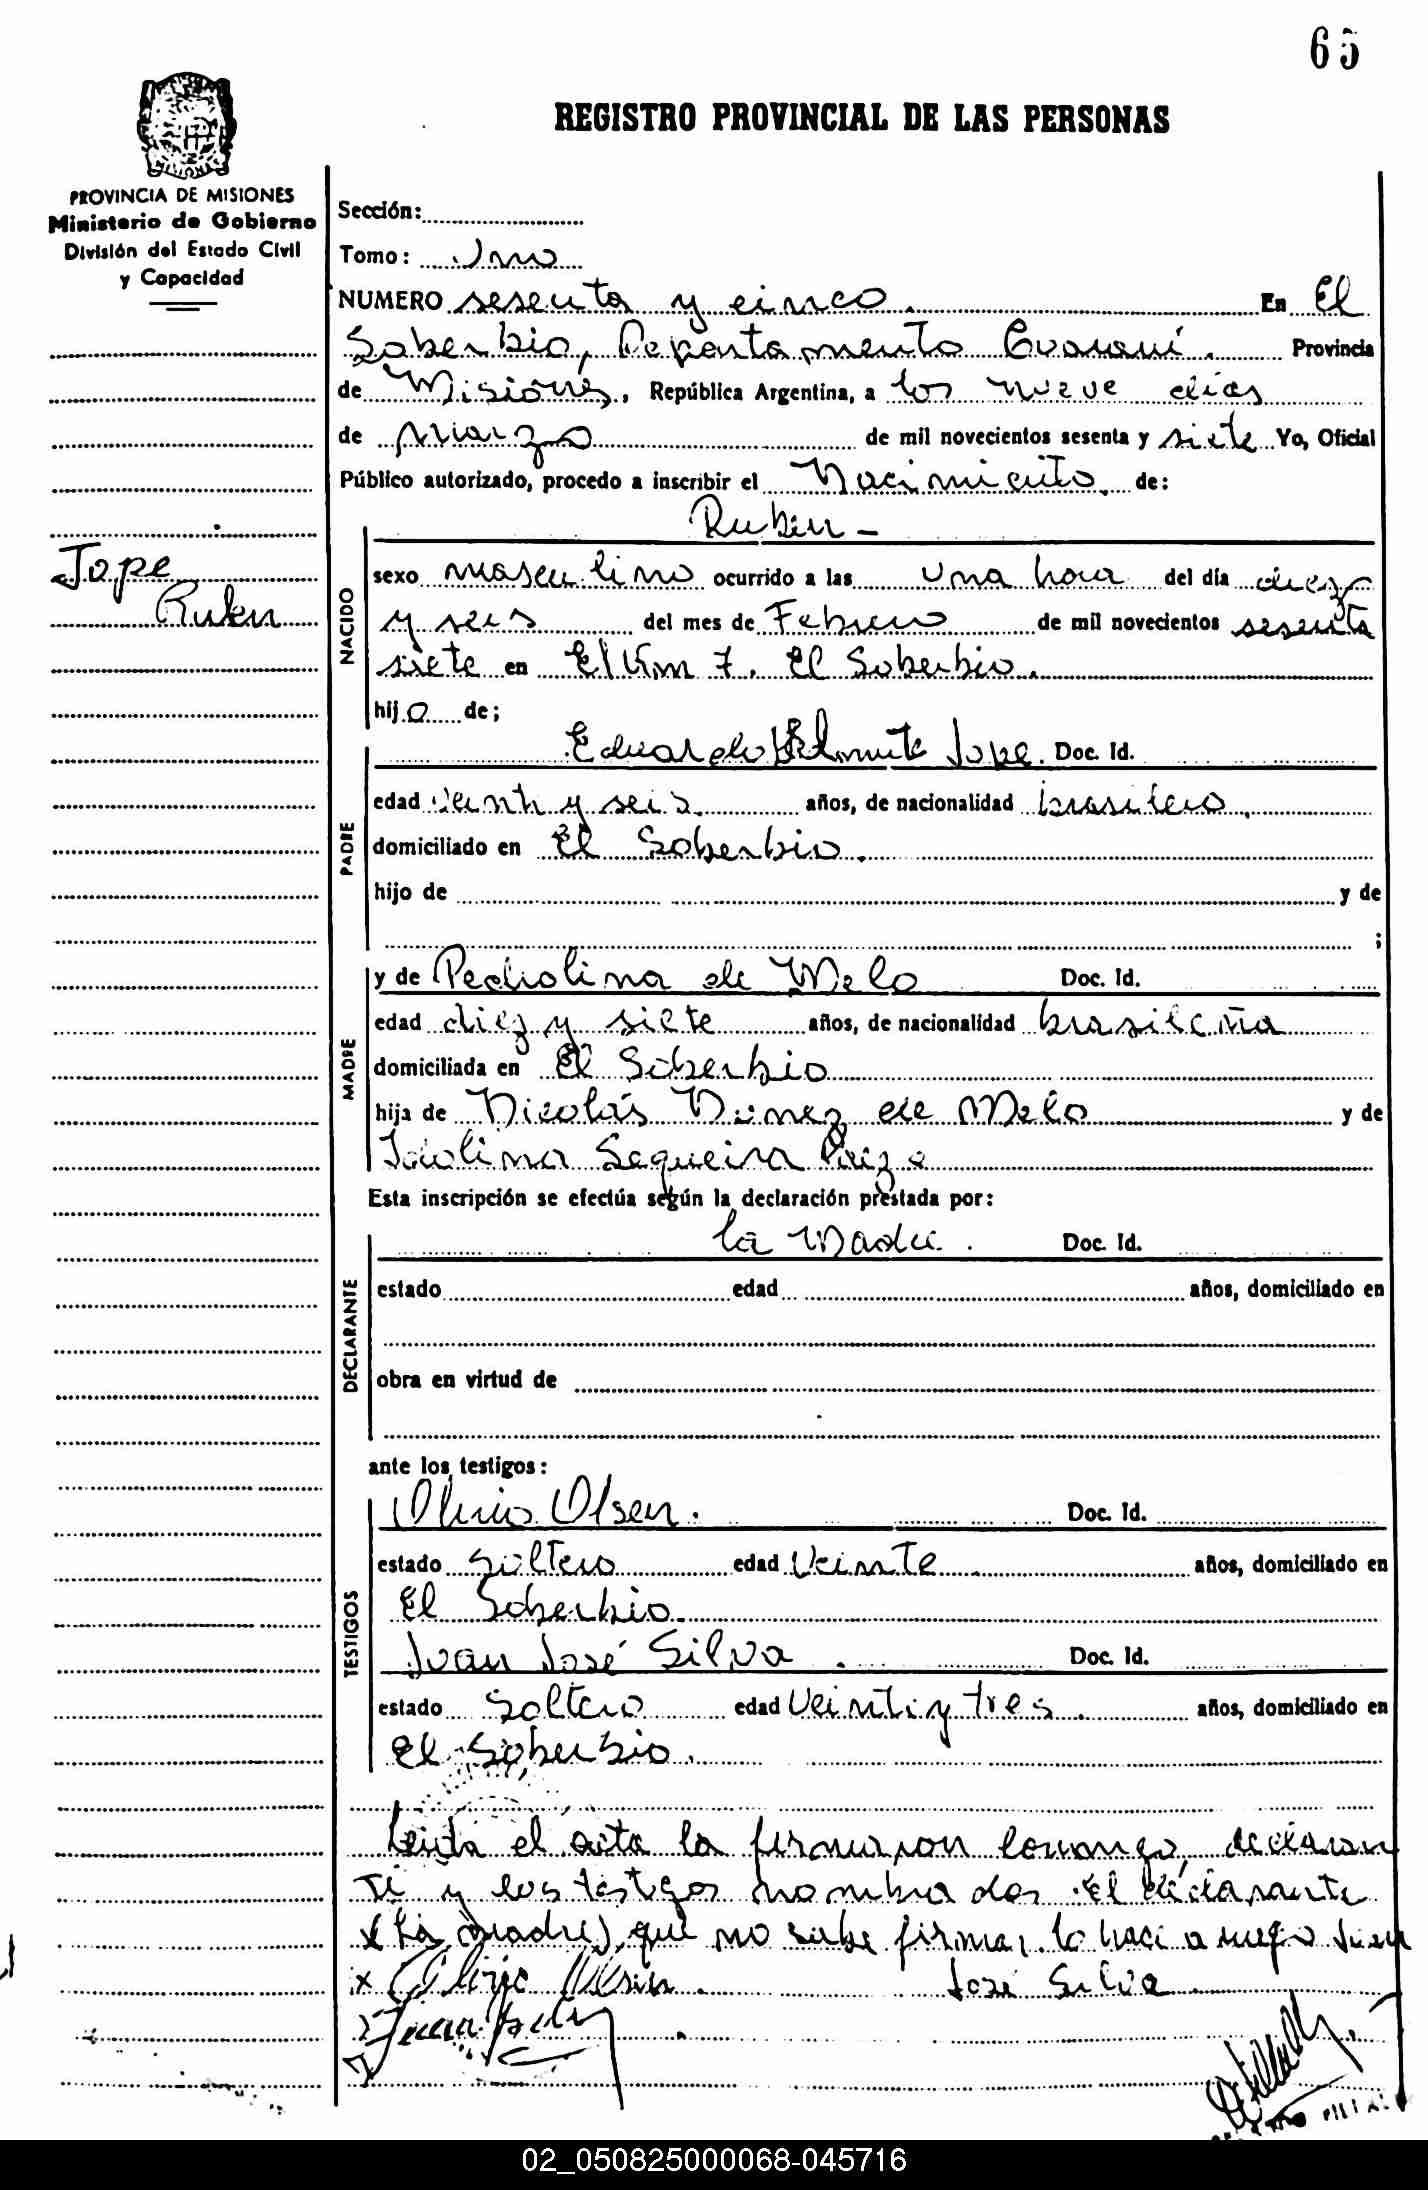 65
REGISTRO PROVINCIAL DE LAS PERSONAS
PROVINCIA DE MISIONES
Ministerio de Gobierno
División del Estado Civil
y Capacidad
Jope
Ruben
Sección:
Tomo: Uno
NUMERO sesenta y cinco. En El
Soberbio, Departamento Guaraní. Provincia
de Misiones, República Argentina, a los nueve días
de Marzo de mil novecientos sesenta y siete Yo, Oficial
Público autorizado, procedo a inscribir el Nacimiento. de:
Ruben -
NACIDO
sexo masculino ocurrido a las una hora del día diez
y seis del mes de Febrero de mil novecientos sesenta
siete en El Km 7. El Soberbio.
hijo de;
PADRE
Eduardo Helmute Jope. Doc. Id.
edad veinti y seis años, de nacionalidad brasilero.
domiciliado en El Soberbio.
hijo de y de
;
MADRE
y de Pedrolina de Melo Doc. Id.
edad diez y siete años, de nacionalidad brasileña
domiciliada en El Soberbio
hija de Nicolás Nunez de Melo y de
Sequeira
Esta inscripción se efectúa según la declaración prestada por:
DECLARANTE
la Madre. Doc. Id.
estado edad años, domiciliado en
obra en virtud de
ante los testigos:
TESTIGOS
Olsen. Doc. Id.
estado Soltero edad Veinte años, domiciliado en
El Soberbio.
Juan José Silva. Doc. Id.
estado Soltero edad Veinti y tres. años, domiciliado en
El Soberbio.
Leida el acta la firmaron conmigo, declaran
te y los testigos nombrados. El declarante
(La madre) que no sabe firmar, lo hace a ruego Juan
José Silva.
02_050825000068-045716